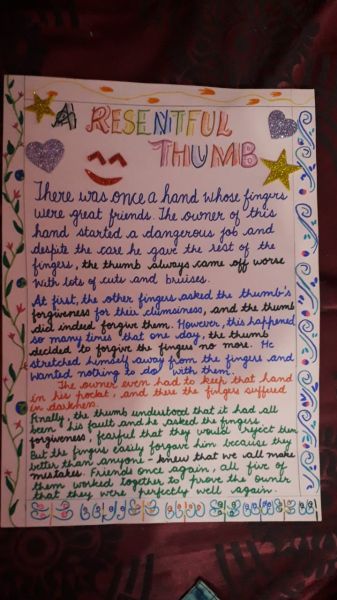 A RESENTFUL
THUMB
There was once a hand whose fingers
were great friends. The owner of this
hand started a dangerous job and
despite the care he gave the rest of the
fingers, the thumb always came off worse
with lots of cuts and bruises.
At first, the other fingers asked the thumb's
forgiveness for their clumsiness, and the thumb
did indeed forgive them. However, this happened
so many times that one day, the thumb
decided to forgive the fingers no more. He
stretched himself away from the fingers and
wanted nothing to do with them.
The owner even had to keep that hand
in his pocket, and there the fingers suffered
in darkness.
Finally, the thumb understood that it had all
been his fault and he asked the fingers
forgiveness, fearful that they would reject him
But the fingers easily forgave him because they
better than anyone - knew that we all make
mistakes. Friends once again, all five of
them worked together to prove the owner
that they were perfectly well again.